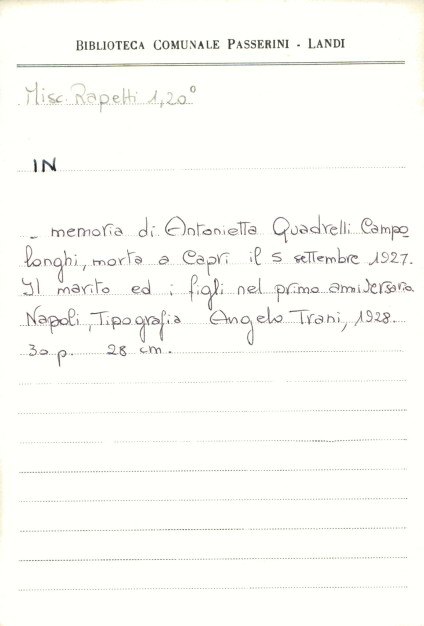 BIBLIOTECA COMUNALE PASSERINI - LANDI
Misc. Rapetti 1,20°
IN
- memoria di Antonietta Quadrelli Campo
longhi, morta a Capri il 5 settembre 1927.
Il marito ed i figli nel primo anniversario
Napoli, Tipografia Angelo Trani, 1928.
30 p. 28 cm.